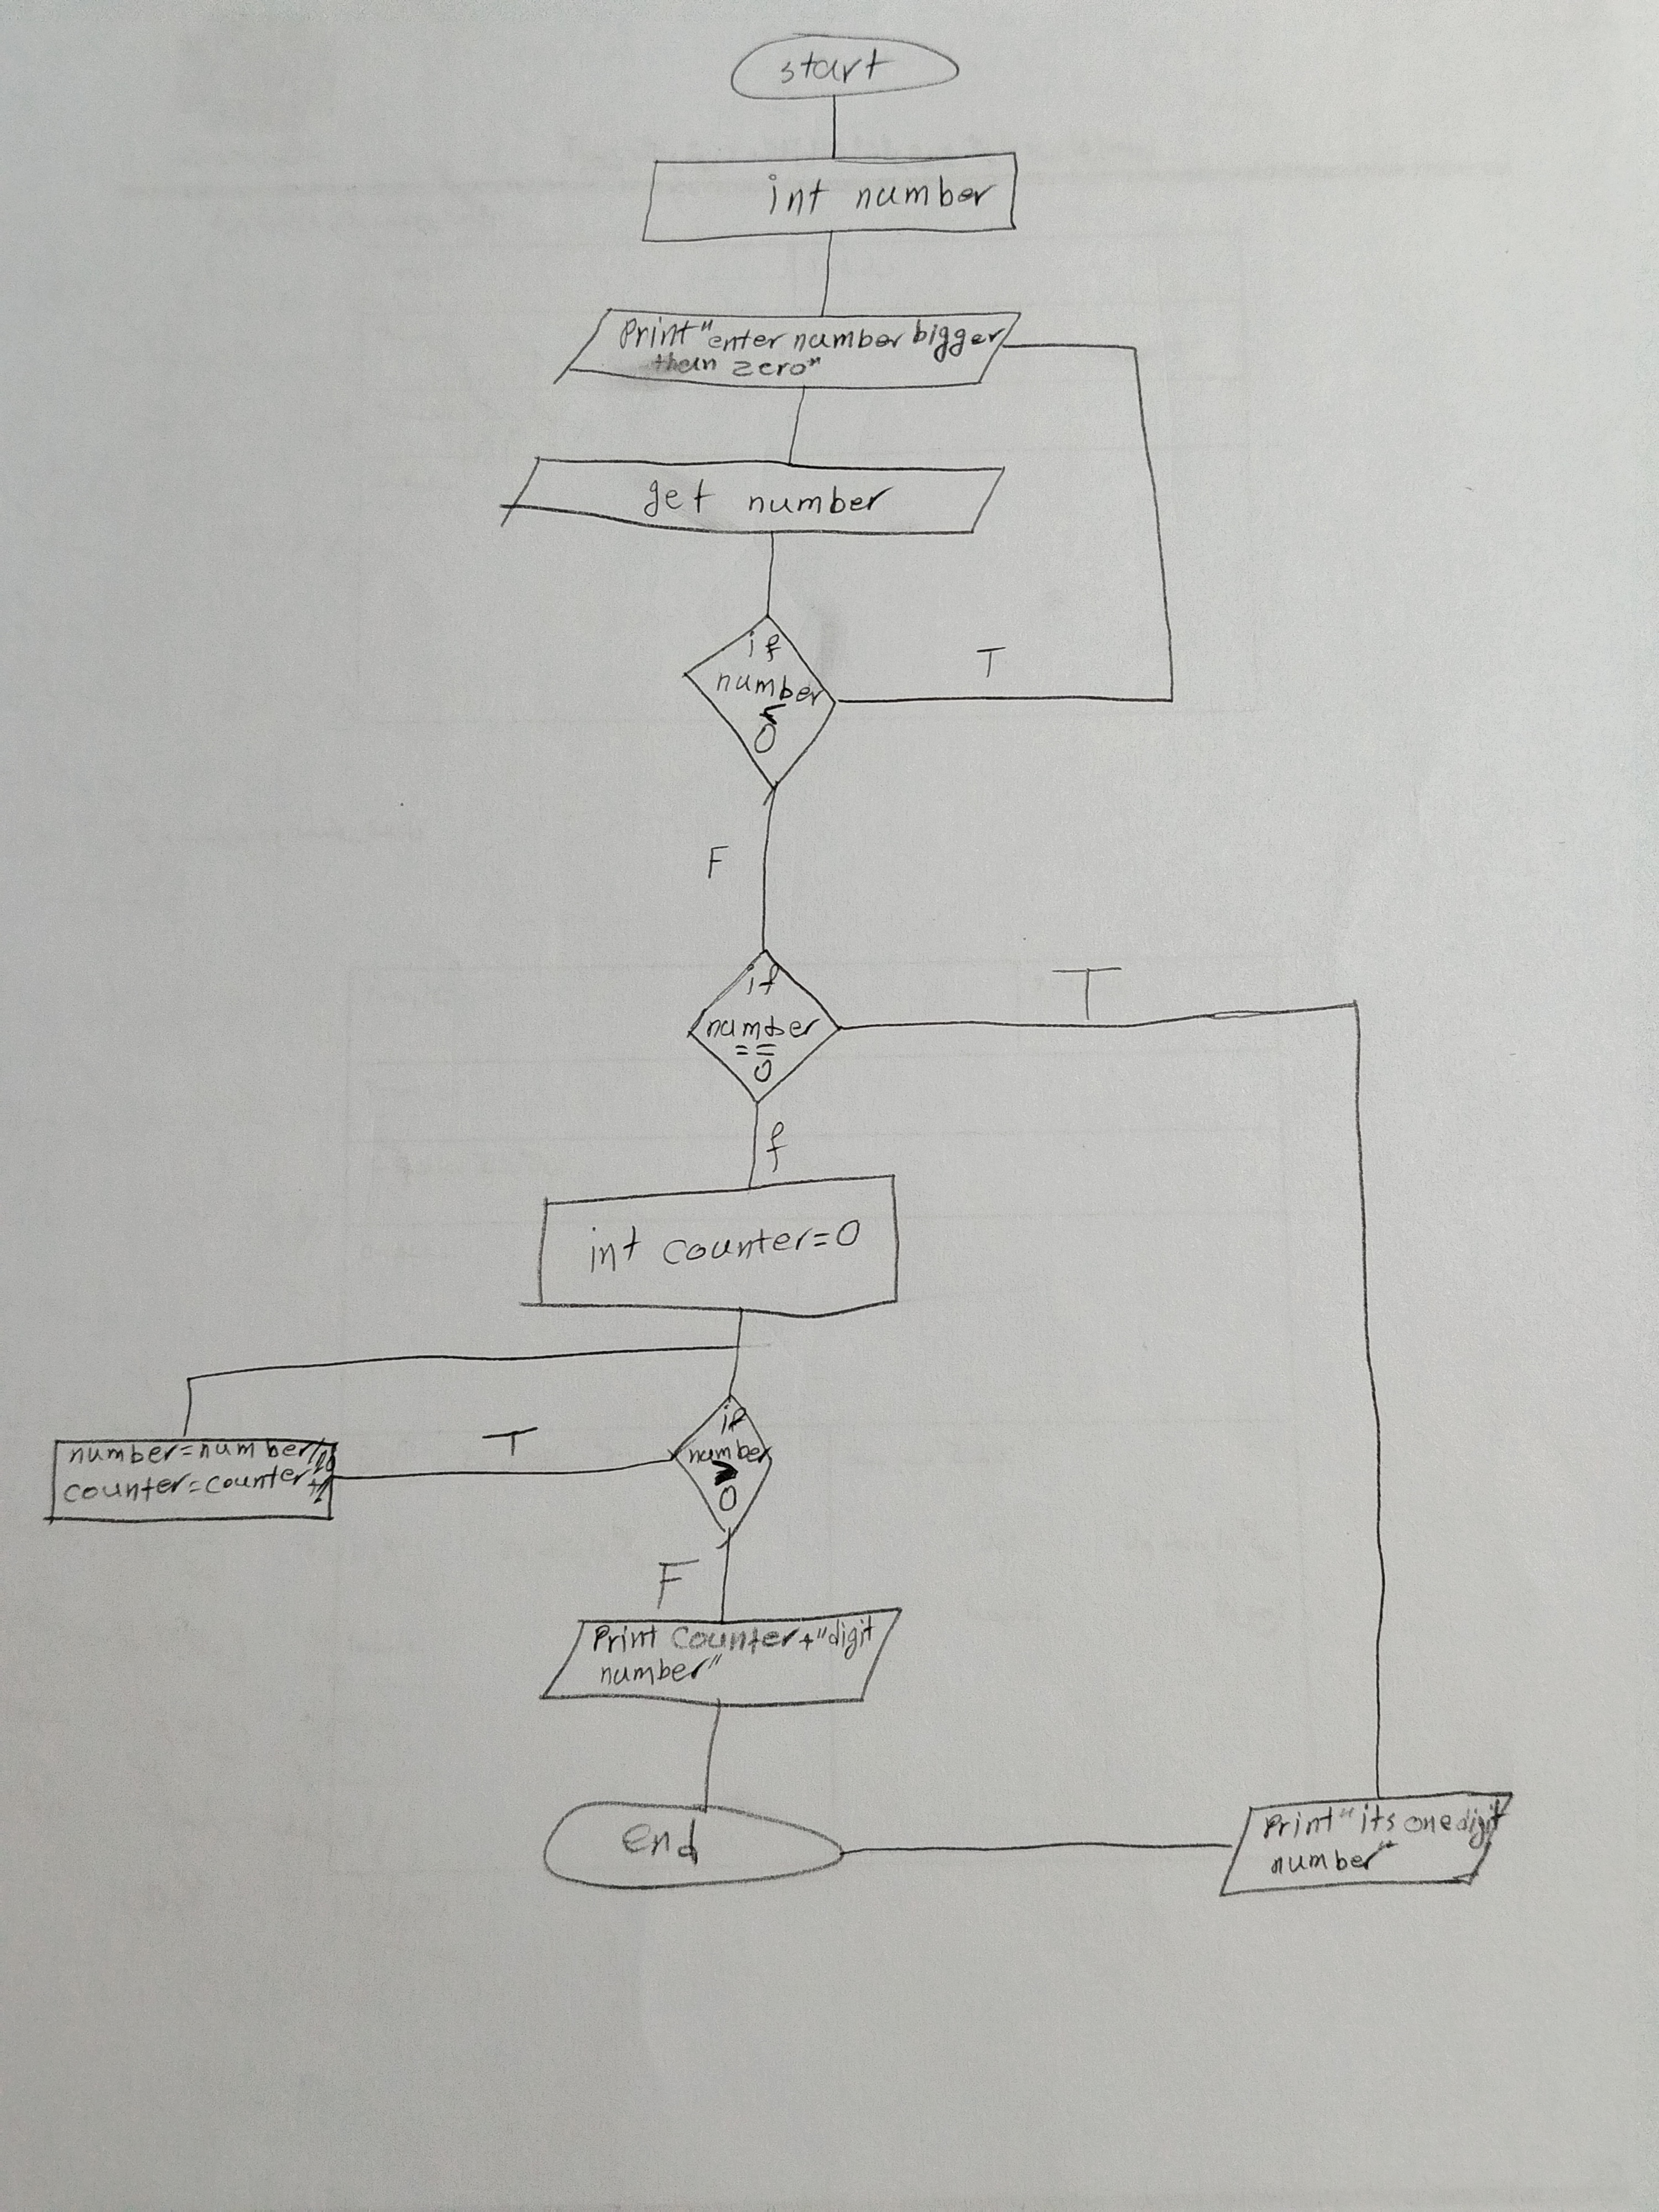 start
int number
Print "enter number bigger
than zero"
get number
if
number
<
0
T
F
if
number
==
0
T
f
int counter=0
if
number
>
0
T
number=number/10
counter=counter+1
F
Print counter+"digit
number"
End
Print "its one digit
number"